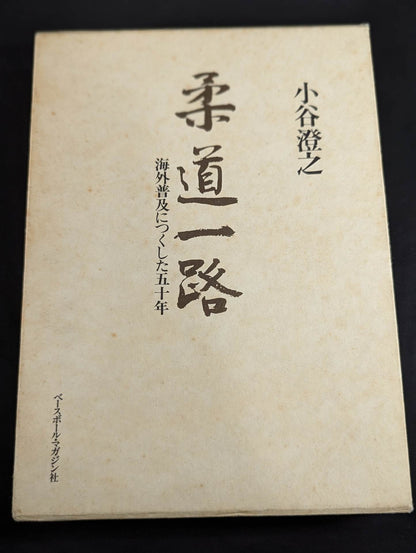 小谷澄之
柔道一路
海外普及につくした五十年
ベースボール・マガジン社